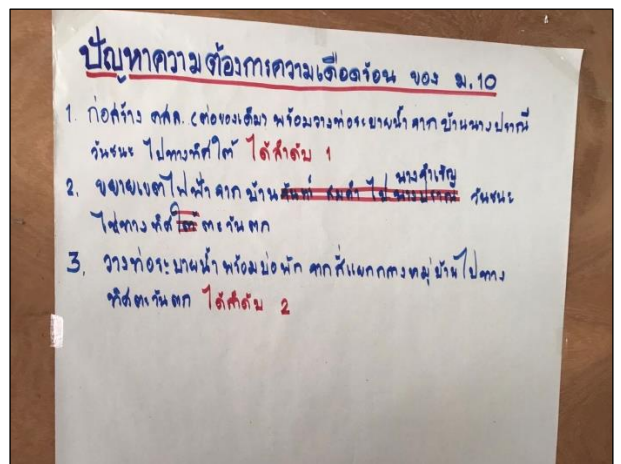 ปัญหาความต้องการความเดือดร้อน ของ ม.10
1. ก่อสร้าง คสล. (ต่อของเดิม) พร้อมวางท่อระบายน้ำ จาก บ้านนางปราณี
วันชนะ ไปทางทิศใต้ ได้ลำดับ 1
นางสำเริญ
2. ขยายเขตไฟฟ้า จาก บ้าน ไปนางปราณี วันชนะ
ไปทางทิศใต้ ตะวันตก
3. วางท่อระบายน้ำพร้อมบ่อพัก จากสี่แยกกลางหมู่บ้านไปทาง
ทิศตะวันตก ได้ลำดับ 2